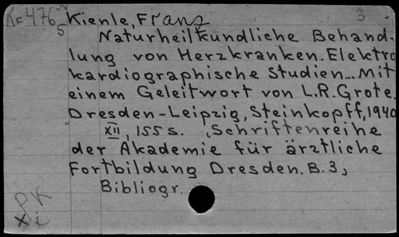 Kc476 Kienle, Franz 3
5 Naturheilkundliche Behand-
lung von Herzkranken. Elektro
kardiographische Studien... Mit
einem Geleitwort von L.R. Grote.
Dresden-Leipzig, Steinkopff, 1940
XII, 155 s. (Schriftenreihe
der Akademie für ärztliche
Fortbildung Dresden. B.3)
Bibliogr.